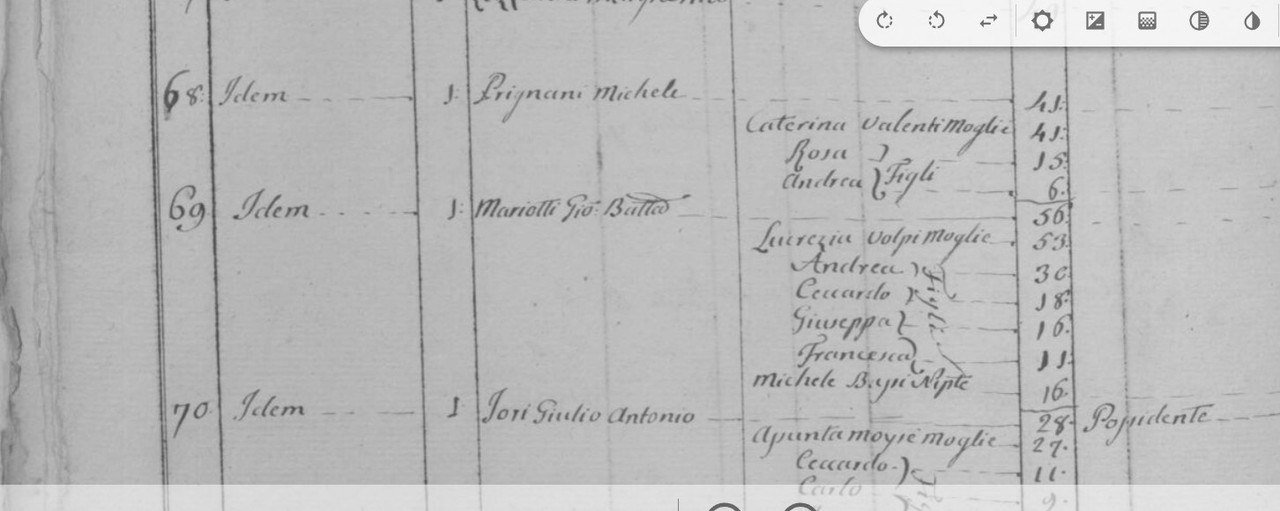 68: Idem 1: Prignani Michele 41:
Caterina Valenti Moglie 41:
Rosa 15:
Andrea } Figli 6.
69 Idem 1: Mariotti Gio: Batta 56:
Lucrezia Volpi Moglie 53:
Andrea 30
Ceccardo 18:
Giuseppa 16:
Francesca } Figli 11:
Michele Nipte 16:
70 Idem 1 Jori Giulio Antonio 28: Possidente
Moglie 27.
Ceccardo 11.
Carlo 9.